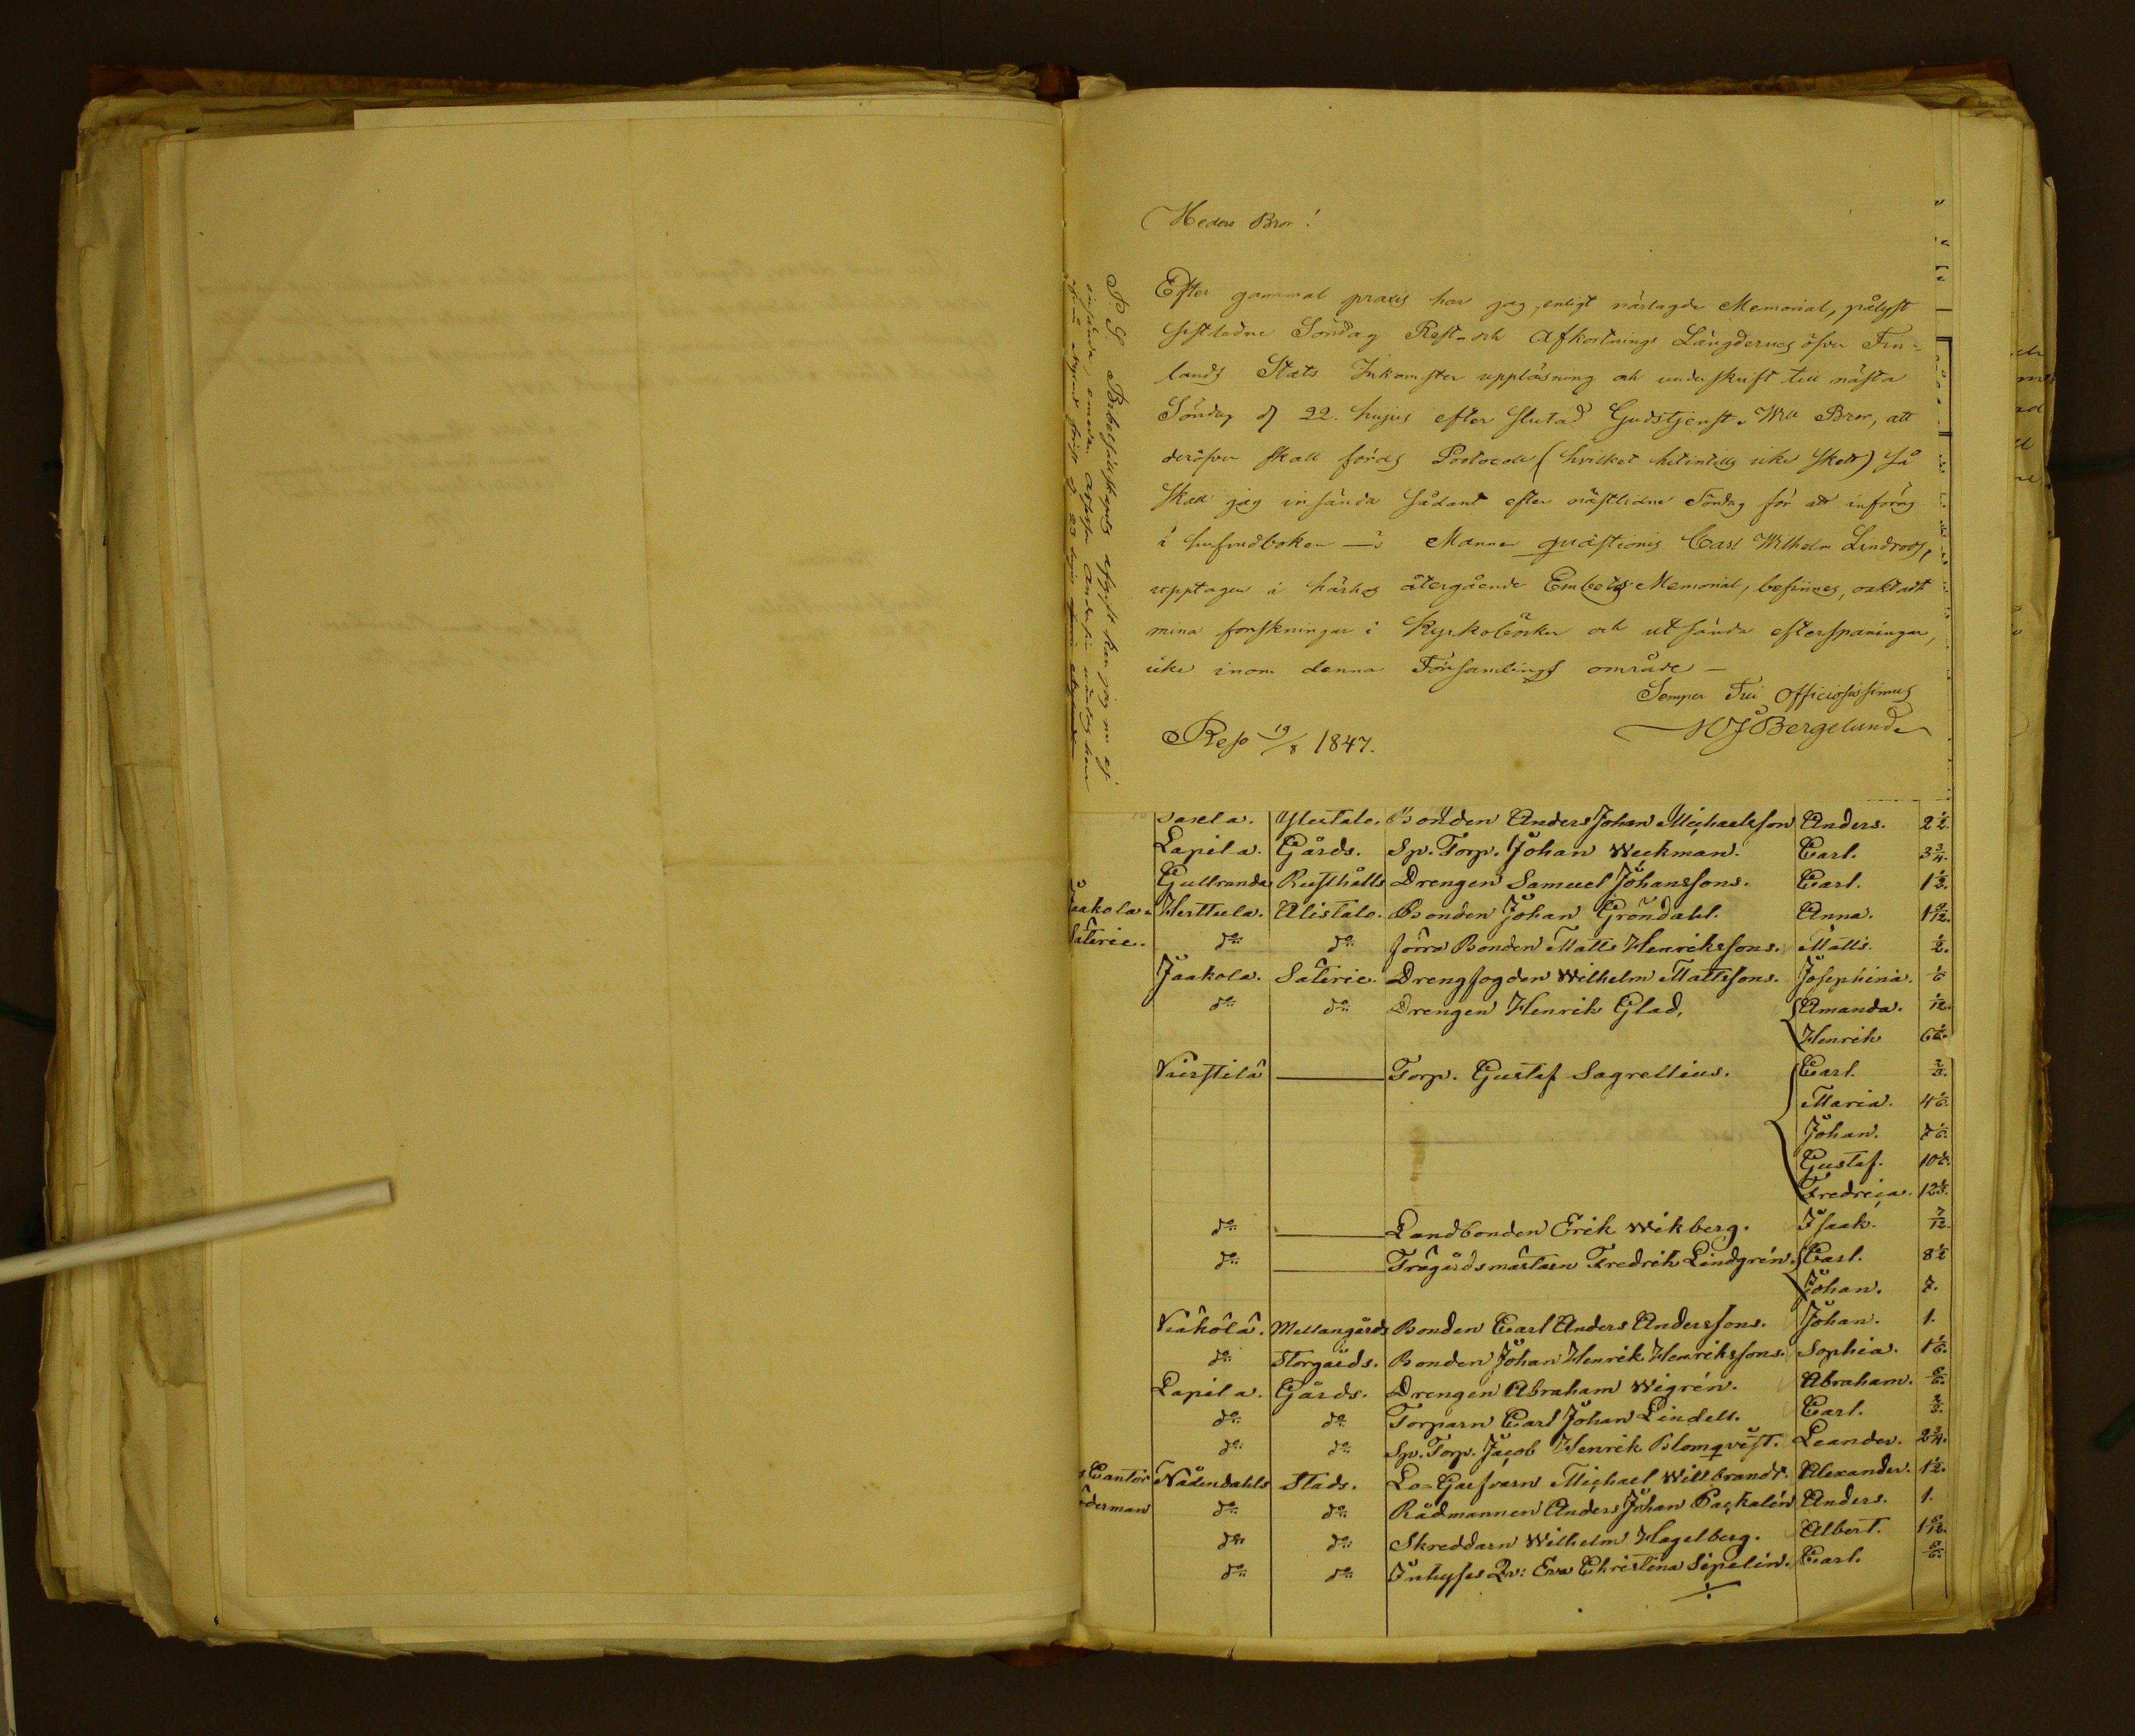 Heders Bror!
Efter gammal praxis har jag, enligt närlagde Memorial, pålyst
sistledne Söndag Rest- och Afkortnings Längdernes öfver Fin-
lands Stats Inkomster uppläsning och underskrift till nästa
Söndag d 22. hujus efter slutad Gudstjenst. Will Bror, att
deröfver skall föras Protocoll (hvilket hitintills icke skett) så
skall jag insända sådant efter nästlidne Söndag för att införas
i hufvudboken — Mannen quästionis Carl Wilhelm Lindroos,
upptagen i härhos återgående Embets Memorial, befinnes, oaktadt
mina forskningar i Kyrkoböcker och utsände efterspaningar,
icke inom denna Församlings område —
Semper Tui Officiosissimus
Bergelund
Reso 19/8 1847.
P S. Bibelsällskapets afgift kan jag nu ej
insända, emedan
Ylistalo. Bonden Anders Johan Michaelsson Anders. 2 1/2.
Lapila. Gårds. Sp. Torp. Johan Weckman. Carl. 3 3/4.
Gullranda Rusthålls Drengen Samuel Johanssons. Carl. 1 1/2.
Jaakola Herttula. Alistalo. Bonden Johan Gröndahl. Anna.
Säterie. do do förra Bonden Matts Henrikssons. Matts. 1/2.
Jaakola. Säterie. Drengfogden Wilhelm Mattssons. Josephina. 1/6
do do Drengen Henrik Glad, Amanda. 1/12.
Henrik
Vierstilä — Torp. Gustaf Sagrellius. Carl. 2/3.
Maria. 4 1/6.
Johan.
Gustaf.
Fredrica.
do — Landbonden Erik Wikberg. Isaak. 7/12.
do — Trägårdsmästarn Fredrik Lindgrén. Carl. 8 1/2
Johan. 7.
Mellangårds Bonden Carl Anders Anderssons. Johan. 1.
do Storgårds. Bonden Johan Henrik Henrikssons. Sophia. 1 1/6.
Lapila. Gårds. Drengen Abraham Wigrén. Abraham.
do do Torparn Carl Johan Lindell. Carl. 2/3.
do do Sp. Torp. Jacob Henrik Blomqvist. Leander. 2 3/4.
Cantor Nådendahls Stads. Lo-Garfvarn Michael Willbrandt. Alexander. 1 1/2.
do do Rådmannen Anders Johan Packalén Anders. 1.
do do Skreddarn Wilhelm Hagelberg. Albert.
do do Inhyses Qv: Eva Christina Sipelin. Carl.